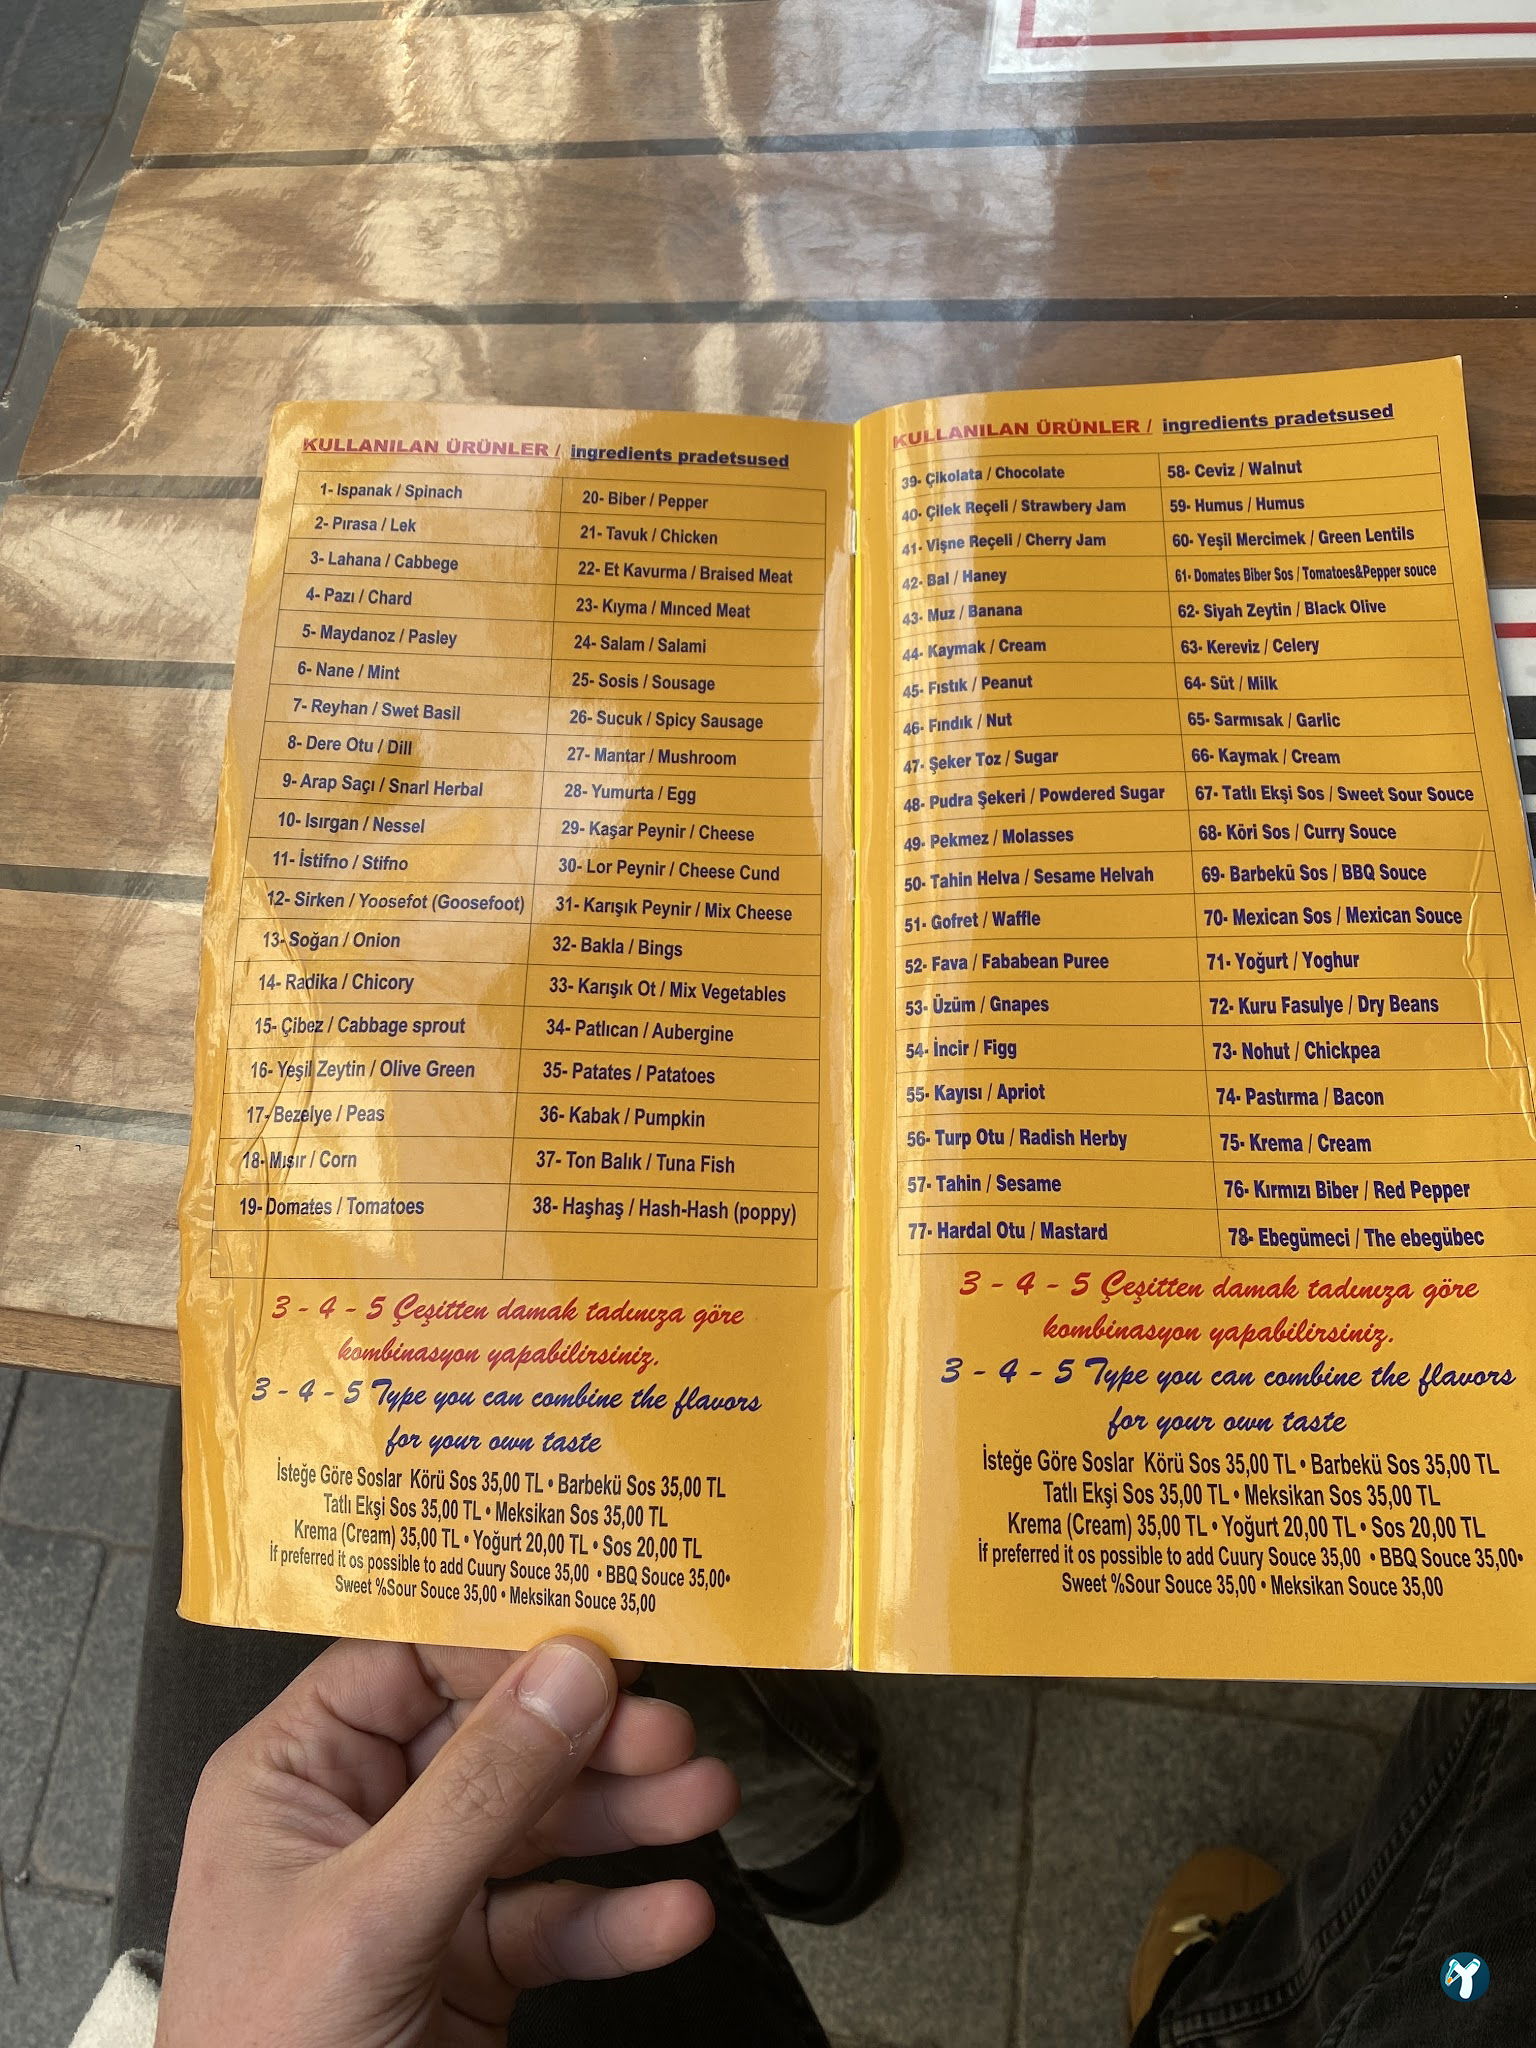 KULLANILAN ÜRÜNLER / ingredients pradetsused
1- Ispanak / Spinach
2- Pırasa / Lek
3- Lahana / Cabbege
4- Pazı / Chard
5- Maydanoz / Pasley
6- Nane / Mint
7- Reyhan / Swet Basil
8- Dere Otu / Dill
9- Arap Saçı / Snarl Herbal
10- Isırgan / Nessel
11- İstifno / Stifno
12- Sirken / Yoosefot (Goosefoot)
13- Soğan / Onion
14- Radika / Chicory
15- Çibez / Cabbage sprout
16- Yeşil Zeytin / Olive Green
17- Bezelye / Peas
18- Mısır / Corn
19- Domates / Tomatoes
20- Biber / Pepper
21- Tavuk / Chicken
22- Et Kavurma / Braised Meat
23- Kıyma / Mınced Meat
24- Salam / Salami
25- Sosis / Sousage
26- Sucuk / Spicy Sausage
27- Mantar / Mushroom
28- Yumurta / Egg
29- Kaşar Peynir / Cheese
30- Lor Peynir / Cheese Cund
31- Karışık Peynir / Mix Cheese
32- Bakla / Bings
33- Karışık Ot / Mix Vegetables
34- Patlıcan / Aubergine
35- Patates / Patatoes
36- Kabak / Pumpkin
37- Ton Balık / Tuna Fish
38- Haşhaş / Hash-Hash (poppy)
3 - 4 - 5 Çeşitten damak tadınıza göre
kombinasyon yapabilirsiniz.
3 - 4 - 5 Type you can combine the flavors
for your own taste
İsteğe Göre Soslar Körü Sos 35,00 TL • Barbekü Sos 35,00 TL
Tatlı Ekşi Sos 35,00 TL • Meksikan Sos 35,00 TL
Krema (Cream) 35,00 TL • Yoğurt 20,00 TL • Sos 20,00 TL
İf preferred it os possible to add Cuury Souce 35,00 • BBQ Souce 35,00•
Sweet %Sour Souce 35,00 • Meksikan Souce 35,00
KULLANILAN ÜRÜNLER / ingredients pradetsused
39- Çikolata / Chocolate
40- Çilek Reçeli / Strawbery Jam
41- Vişne Reçeli / Cherry Jam
42- Bal / Haney
43- Muz / Banana
44- Kaymak / Cream
45- Fıstık / Peanut
46- Fındık / Nut
47- Şeker Toz / Sugar
48- Pudra Şekeri / Powdered Sugar
49- Pekmez / Molasses
50- Tahin Helva / Sesame Helvah
51- Gofret / Waffle
52- Fava / Fababean Puree
53- Üzüm / Gnapes
54- İncir / Figg
55- Kayısı / Apriot
56- Turp Otu / Radish Herby
57- Tahin / Sesame
77- Hardal Otu / Mastard
58- Ceviz / Walnut
59- Humus / Humus
60- Yeşil Mercimek / Green Lentils
61- Domates Biber Sos / Tomatoes&Pepper souce
62- Siyah Zeytin / Black Olive
63- Kereviz / Celery
64- Süt / Milk
65- Sarmısak / Garlic
66- Kaymak / Cream
67- Tatlı Ekşi Sos / Sweet Sour Souce
68- Köri Sos / Curry Souce
69- Barbekü Sos / BBQ Souce
70- Mexican Sos / Mexican Souce
71- Yoğurt / Yoghur
72- Kuru Fasulye / Dry Beans
73- Nohut / Chickpea
74- Pastırma / Bacon
75- Krema / Cream
76- Kırmızı Biber / Red Pepper
78- Ebegümeci / The ebegübec
3 - 4 - 5 Çeşitten damak tadınıza göre
kombinasyon yapabilirsiniz.
3 - 4 - 5 Type you can combine the flavors
for your own taste
İsteğe Göre Soslar Körü Sos 35,00 TL • Barbekü Sos 35,00 TL
Tatlı Ekşi Sos 35,00 TL • Meksikan Sos 35,00 TL
Krema (Cream) 35,00 TL • Yoğurt 20,00 TL • Sos 20,00 TL
İf preferred it os possible to add Cuury Souce 35,00 • BBQ Souce 35,00•
Sweet %Sour Souce 35,00 • Meksikan Souce 35,00